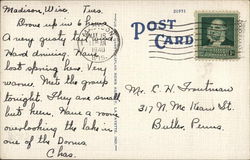 Madison, Wisc. Tues.
Drove up in 6 hours
A very gusty
Hard driving. Have
lost spring here. Very
warm. Met the group
tonight. They are small
but keen. Have a room
overlooking the lake in
one of the Dorms.
Chas.
POST
CARD
1940
Mr. C. H. Troutman
317 N. McKean St.
Butler, Penna.